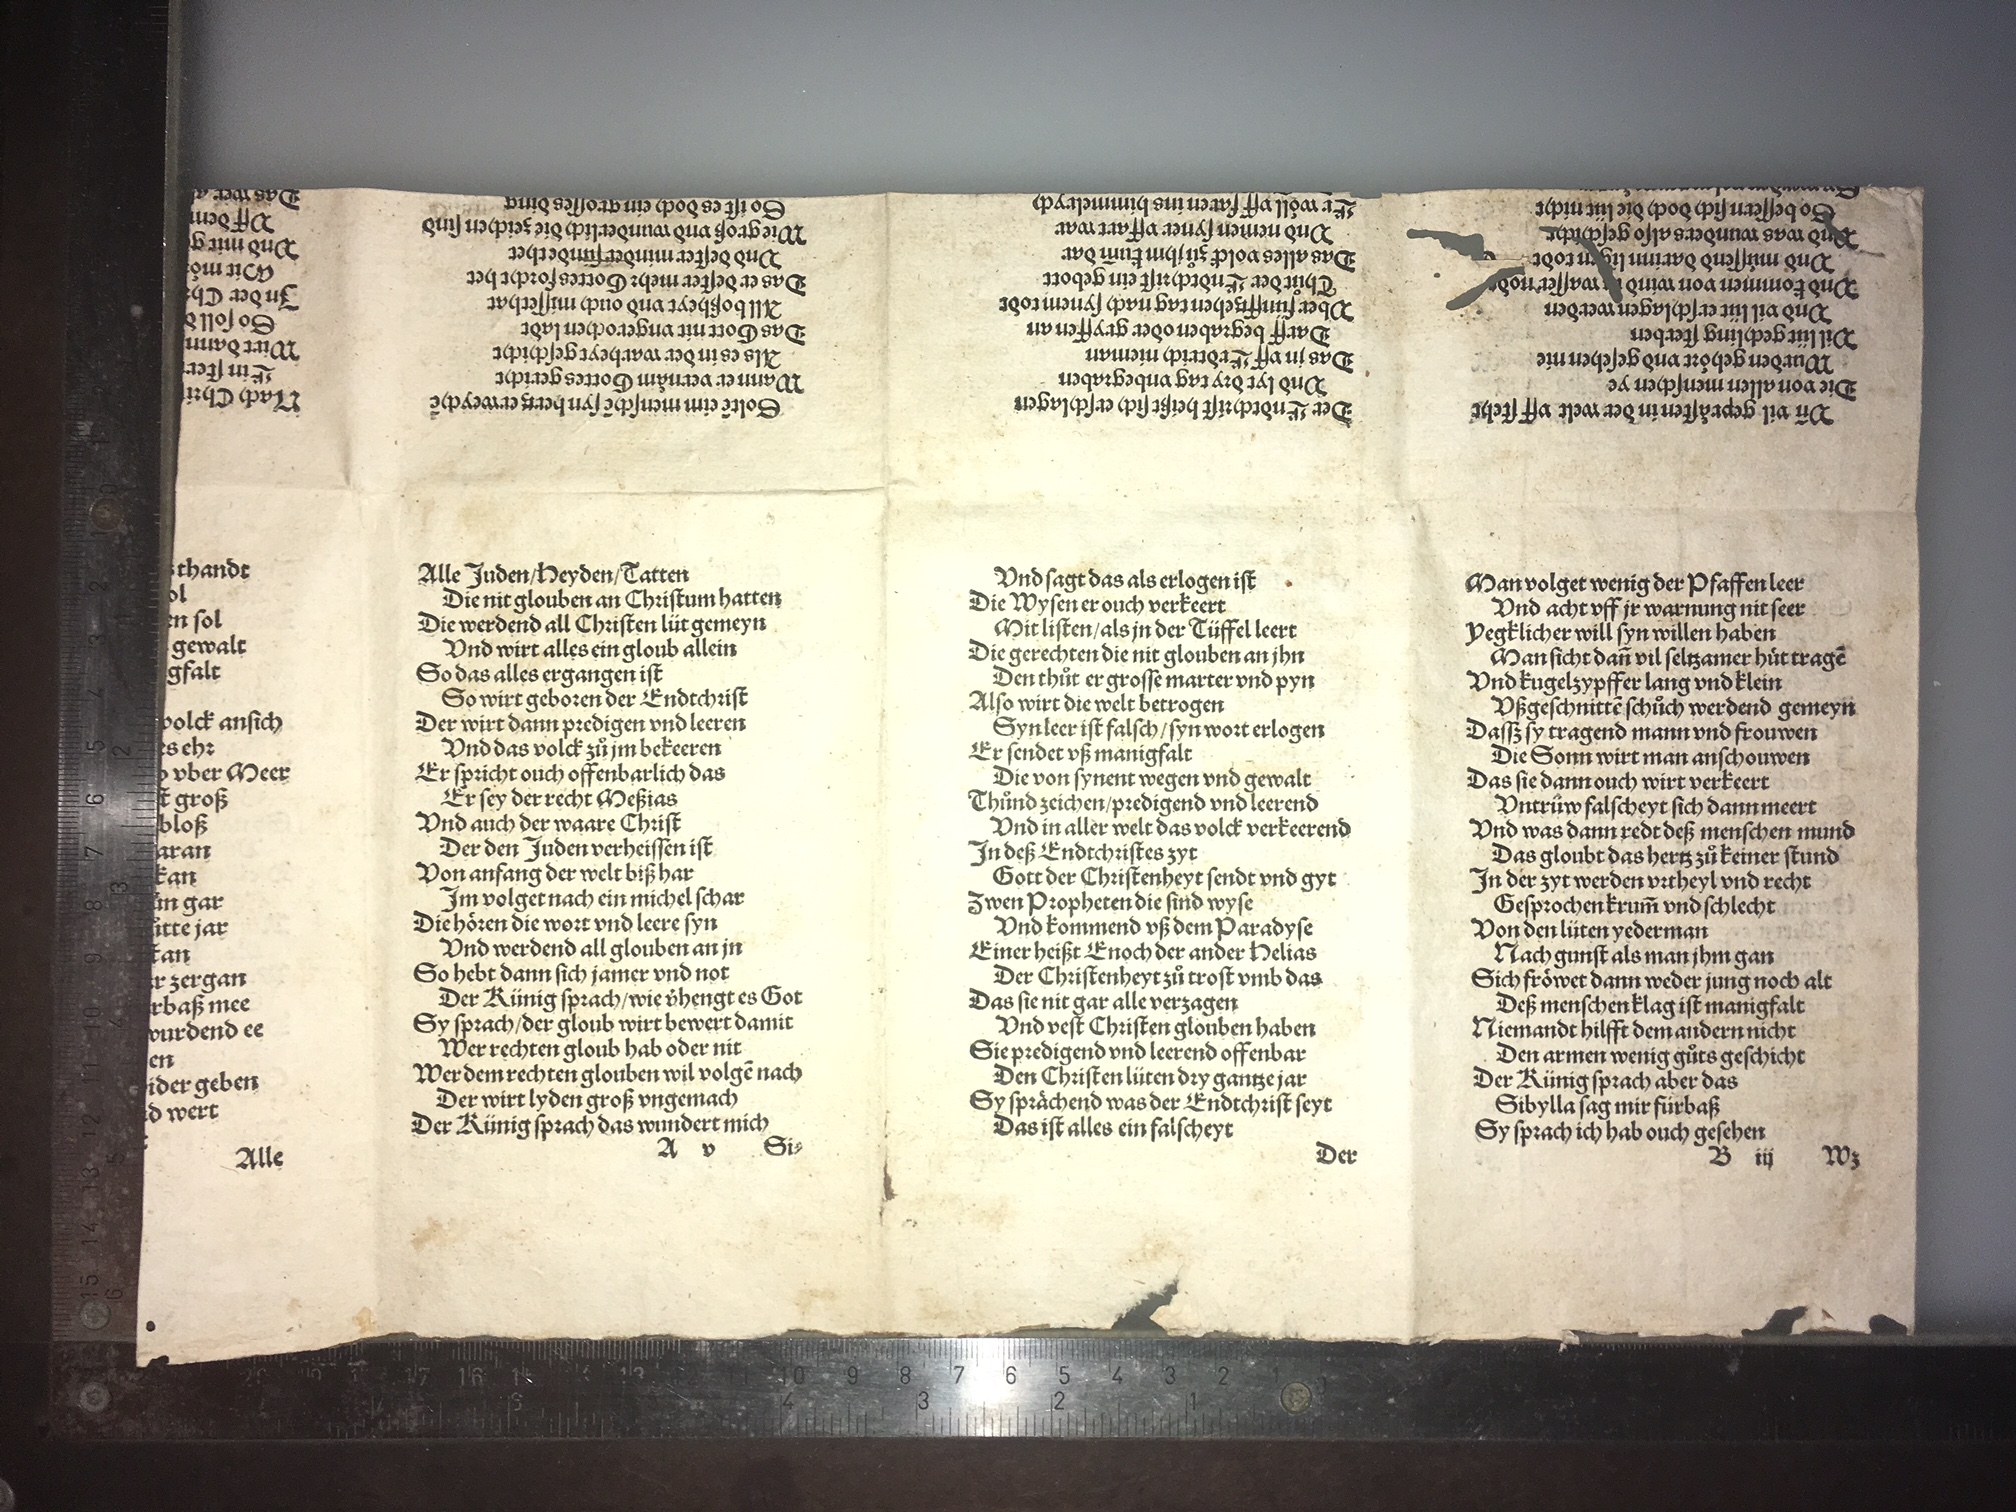 Nach Chri
Ein stern
Wirt dann
So soll d
In der Ch
Wir mö
Vnd mit g
Vff dem
Das wer a
Soltē eim menschē syn hertz erweychē
Wann er vernäm Gottes gericht
Als es in der warheyt geschicht
Das Gott nit vngerochen ladt
All boßheyt vnd ouch missethat
Das er dester mehr Gottes forcht het
Vnd dester minder sünder bet
Wie groß vnd wunderlich die zeichen sind
So ist es doch ein grosses ding
Der Endtchrist heißt sich erschlagen
Vnd lyt dry tag vnbegraben
Das jn vff Erdtrich nieman
Darff begraben oder gryffen an
Vber fünfftzehen tag nach synem tode
Thůt der Endtchrist ein gebott
Das alles volck zů jhm kum̄ dar
Vnd nemen syner vffart war
Er wöll vff faren ins himmelrych
Vn̄ vil geprästen in der welt vff steht
Die von allen menschen ye
Wurden gehört vnd gesehen nie
Vil lüt gechling sterben
Vnd vil lüt erschlagen werden
Vnd kommen von wind wasser node
Vnd müssend darinn ligen tode
Vnd was wunders also geschicht
So bessern sich doch die lüt nicht
thandt
ol
en sol
gewalt
gfalt
volck ansich
es ehr
vber Meer
t groß
bloß
aran
kan
in gar
itte jar
kan
r zergan
rbaß mee
wurdend ee
en
ider geben
d wert
Alle
Alle Juden/Heyden/Tatten
Die nit glouben an Christum hatten
Die werdend all Christen lüt gemeyn
Vnd wirt alles ein gloub allein
So das alles ergangen ist
So wirt geboren der Endtchrist
Der wirt dann predigen vnd leeren
Vnd das volck zů jm bekeeren
Er spricht ouch offenbarlich das
Er sey der recht Meßias
Vnd auch der waare Christ
Der den Juden verheissen ist
Von anfang der welt biß har
Im volget nach ein michel schar
Die hören die wort vnd leere syn
Vnd werdend all glouben an jn
So hebt dann sich jamer vnd not
Der Künig sprach/wie v̄hengt es Got
Sy sprach/der gloub wirt bewert damit
Wer rechten gloub hab oder nit
Wer dem rechten glouben wil volgē nach
Der wirt lyden groß vngemach
Der Künig sprach das wundert mich
A v Si-
Vnd sagt das als erlogen ist
Die Wysen er ouch verkeert
Mit listen/als jn der Tüffel leert
Die gerechten die nit glouben an jhn
Den thůt er grosse marter vnd pyn
Also wirt die welt betrogen
Syn leer ist falsch/syn wort erlogen
Er sendet vß manigfalt
Die von synent wegen vnd gewalt
Thůnd zeichen/predigend vnd leerend
Vnd in aller welt das volck verkeerend
In deß Endtchristes zyt
Gott der Christenheyt sendt vnd gyt
Zwen Propheten die sind wyse
Vnd kommend vß dem Paradyse
Einer heißt Enoch der ander Helias
Der Christenheyt zů trost vmb das
Das sie nit gar alle verzagen
Vnd vest Christen glouben haben
Sie predigend vnd leerend offenbar
Den Christen lüten dry gantze jar
Sy sprächend was der Endtchrist seyt
Das ist alles ein falscheyt
Der
Man volget wenig der Pfaffen leer
Vnd acht vff jr warnung nit seer
Yegklicher will syn willen haben
Man sicht dan̄ vil seltzamer hüt tragē
Vnd kugelzypffer lang vnd klein
Vßgeschnittē schůch werdend gemeyn
Dassz sy tragend mann vnd frouwen
Die Sonn wirt man anschouwen
Das sie dann ouch wirt verkeert
Vntrüw falscheyt sich dann meert
Vnd was dann redt deß menschen mund
Das gloubt das hertz zů keiner stund
In der zyt werden vrtheyl vnd recht
Gesprochen krum̄ vnd schlecht
Von den lüten yederman
Nach gunst als man jhm gan
Sich fröwet dann weder jung noch alt
Deß menschen klag ist manigfalt
Niemandt hilfft dem andern nicht
Den armen wenig gůts geschicht
Der Künig sprach aber das
Sibylla sag mir fürbaß
Sy sprach ich hab ouch gesehen
B iij Wz